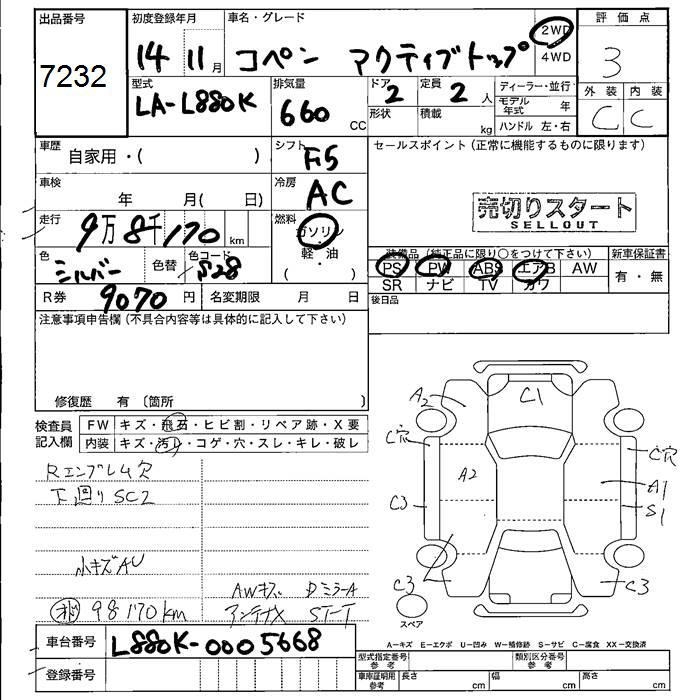 出品番号 初度登録年月 車名・グレード 評価点
7232 14 11月 コペン アクティブトップ 2WD 4WD 3
型式 排気量 ドア 定員 ディーラー・並行 外装 内装
LA-L880K 660 CC 2 2 人 モデル年式 年 C C
形状 積載 kg ハンドル 左・右
車歴 自家用・( ) シフト F5 セールスポイント (正常に機能するものに限ります)
車検 年 月( 日) 冷房 AC 売切りスタート
SELLOUT
走行 9万8千170km 燃料 ガソリン
軽・油
( )
装備品 (純正品に限り○をつけて下さい) 新車保証書
色 シルバー 色替 色コード S28 PS PW ABS エアB AW 有・無
SR ナビ TV カワ
R券 9070円 名変期限 月 日 後日品
注意事項申告欄 (不具合内容等は具体的に記入して下さい)
修復歴 有 〔箇所 〕
検査員記入欄 FW キズ・飛石・ヒビ割・リペア跡・X要
内装 キズ・汚レ・コゲ・穴・スレ・キレ・破レ
Rエンブレム穴
下廻りSC2
小キズAU
AWキズ DミラーA
98170km アンテナX ST-T
A2 C1
C穴 C穴
A2 A1
C3 S1
C3 C3
スペア
A-キズ E-エクボ U-凹み W-補修跡 S-サビ C-腐食 XX-交換済
車台番号 L880K-0005668
型式指定番号 参考 類別区分番号 参考
登録番号 車庫証明用 参考 長さ cm 幅 cm 高さ cm